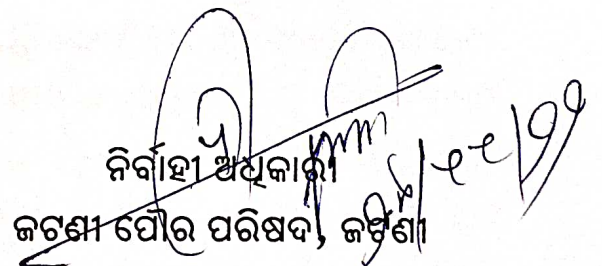 ନିର୍ବାହୀ ଅଧିକାରୀ
ଜଟଣୀ ପୌର ପରିଷଦ, ଜଟଣୀ